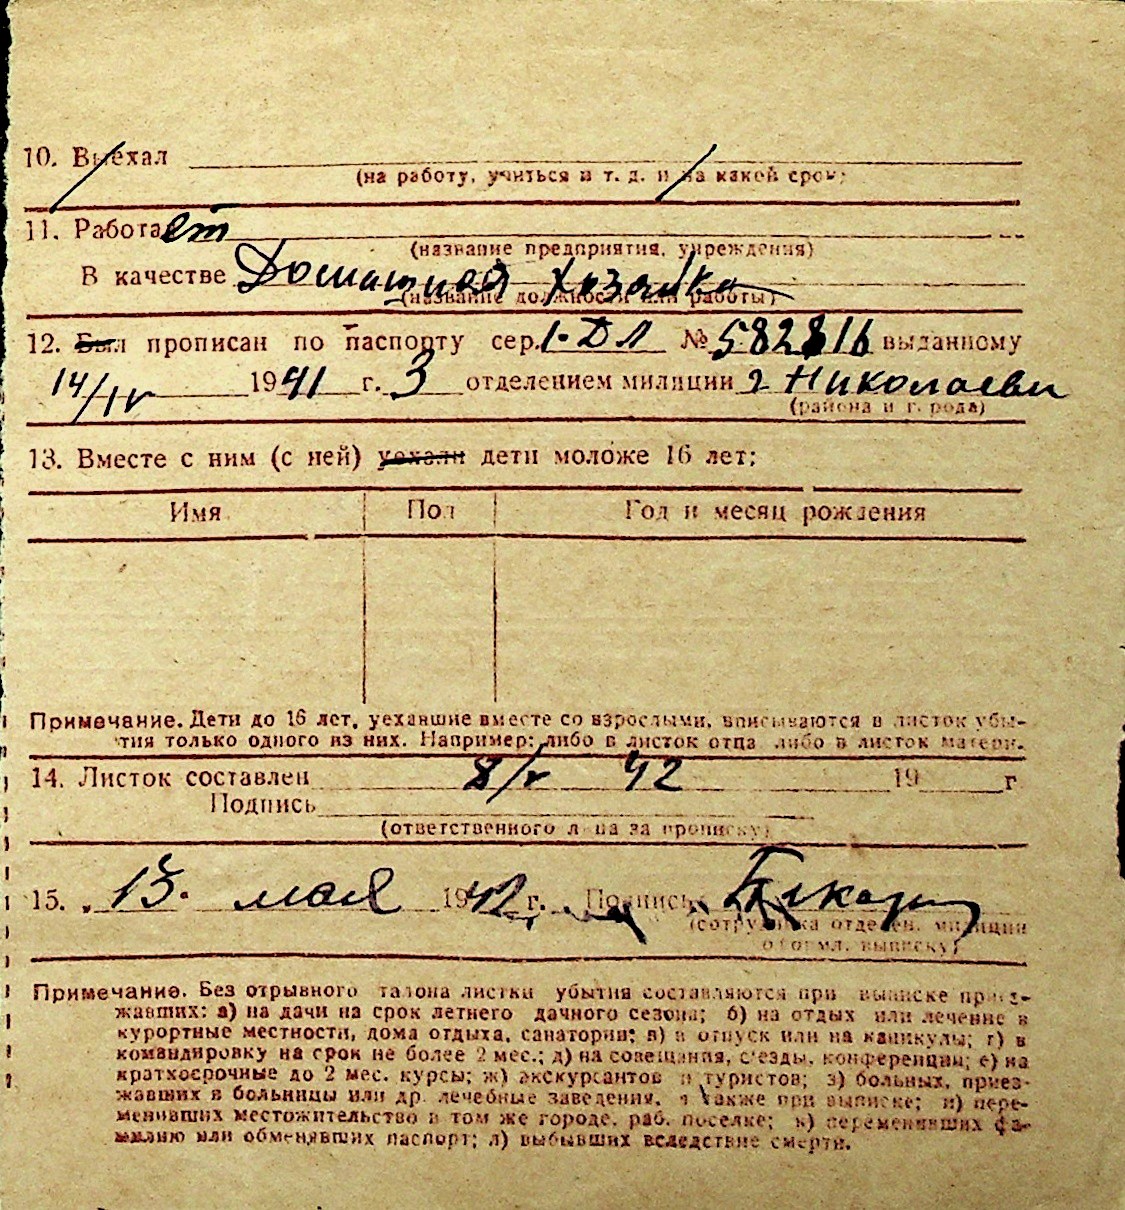 10. Выехал
(на работу, учиться и т. д. и на какой срок)
11. Работает
(название предприятия, учреждения)
В качестве Домашная хозайка
(название должности или работы)
12. Был прописан по паспорту сер. 1-ДЛ № 582816 выданному
14/IV 1941 г. 3 отделением милиции г Николаеви
(района и города)
13. Вместе с ним (с ней) уехали дети моложе 16 лет:
Имя Пол Год и месяц рождения
Примечание. Дети до 16 лет, уехавшие вместе со взрослыми, вписываются в листок убы-
тия только одного из них. Например: либо в листок отца либо в листок матери.
14. Листок составлен 8/V 42 19 г
Подпись
(ответственного лица за прописку)
15. 13. мая 1942 г. Подпись
(сотрудника отделен. милиции
оформл. выписку)
Примечание. Без отрывного талона листки убытия составляются при выписке приез-
жавших: а) на дачи на срок летнего дачного сезона; б) на отдых или лечение в
курортные местности, дома отдыха, санатории; в) в отпуск или на каникулы; г) в
командировку на срок не более 2 мес.; д) на совещания, с'езды, конференции; е) на
краткосрочные до 2 мес. курсы; ж) экскурсантов и туристов; з) больных, приез-
жавших в больницы или др. лечебные заведения, а также при выписке; и) пере-
менивших местожительство в том же городе, раб. поселке; к) переменивших фа-
милию или обменявших паспорт; л) выбывших вследствие смерти.